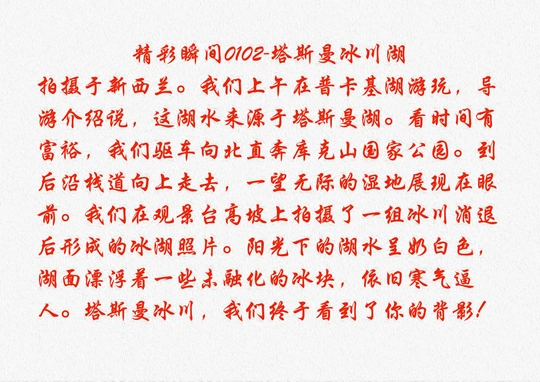 精彩瞬间0102-塔斯曼冰川湖
拍摄于新西兰。我们上午在普卡基湖游玩，导
游介绍说，这湖水来源于塔斯曼湖。看时间有
富裕，我们驱车向北直奔库克山国家公园。到
后沿栈道向上走去，一望无际的湿地展现在眼
前。我们在观景台高坡上拍摄了一组冰川消退
后形成的冰湖照片。阳光下的湖水呈奶白色，
湖面漂浮着一些未融化的冰块，依旧寒气逼
人。塔斯曼冰川，我们终于看到了你的背影！